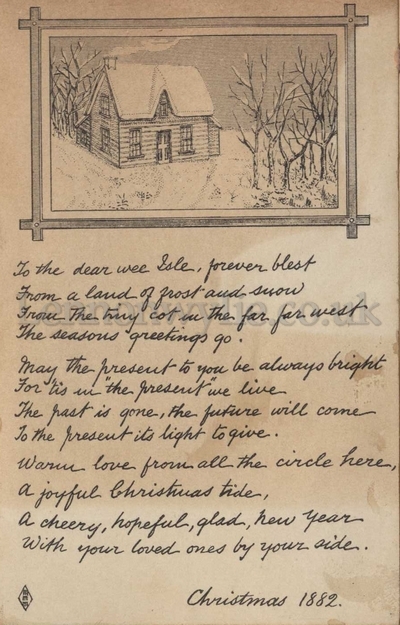 To the dear wee Isle, forever blest
From a land of frost and snow
From the tiny cot in the far far west
The seasons greetings go.
May the present to you be always bright
For 'tis in "the present" we live
The past is gone, the future will come
To the present its light to give.
Warm love from all the circle here,
A joyful Christmas tide,
A cheery, hopeful, glad, New Year
With your loved ones by your side.
Christmas 1882.